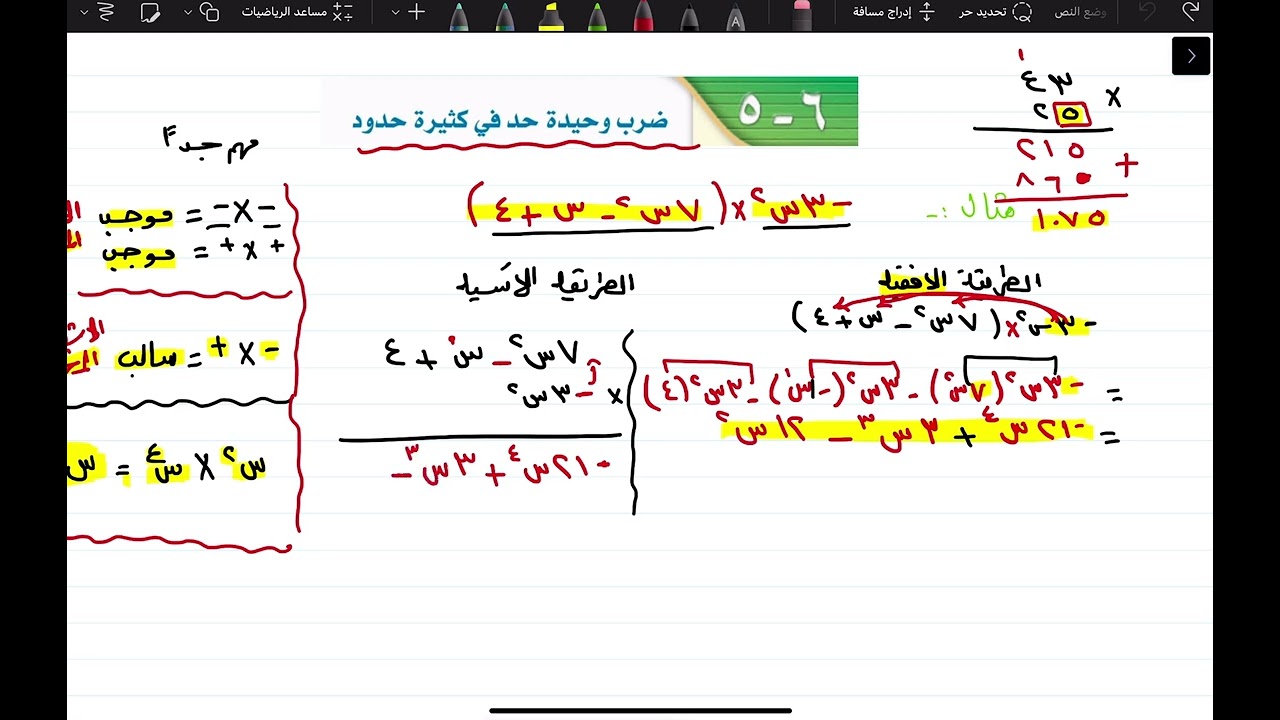 وضع النص تحديد حر إدراج مسافة مساعد الرياضيات
٦ - ٥ ضرب وحيدة حد في كثيرة حدود
١
٤٣
× ٢٥
٢١٥
+ ٨٦٠
١٠٧٥
مثال :-
-٣س٢ × (٧س٢ - س + ٤)
الطريقة الافقيه
-٣س٢ × (٧س٢ - س + ٤)
= -٣س٢(٧س٢) - ٣س٢(-س) - ٣س٢(٤)
= -٢١س٤ + ٣س٣ - ١٢س٢
الطريقه الاسيه
٧س٢ - س + ٤
× -٣س٢
-٢١س٤ + ٣س٣ -
مهم جداً
- × - = موجب
+ × + = موجب
- × + = سالب
س٢ × س٤ = س